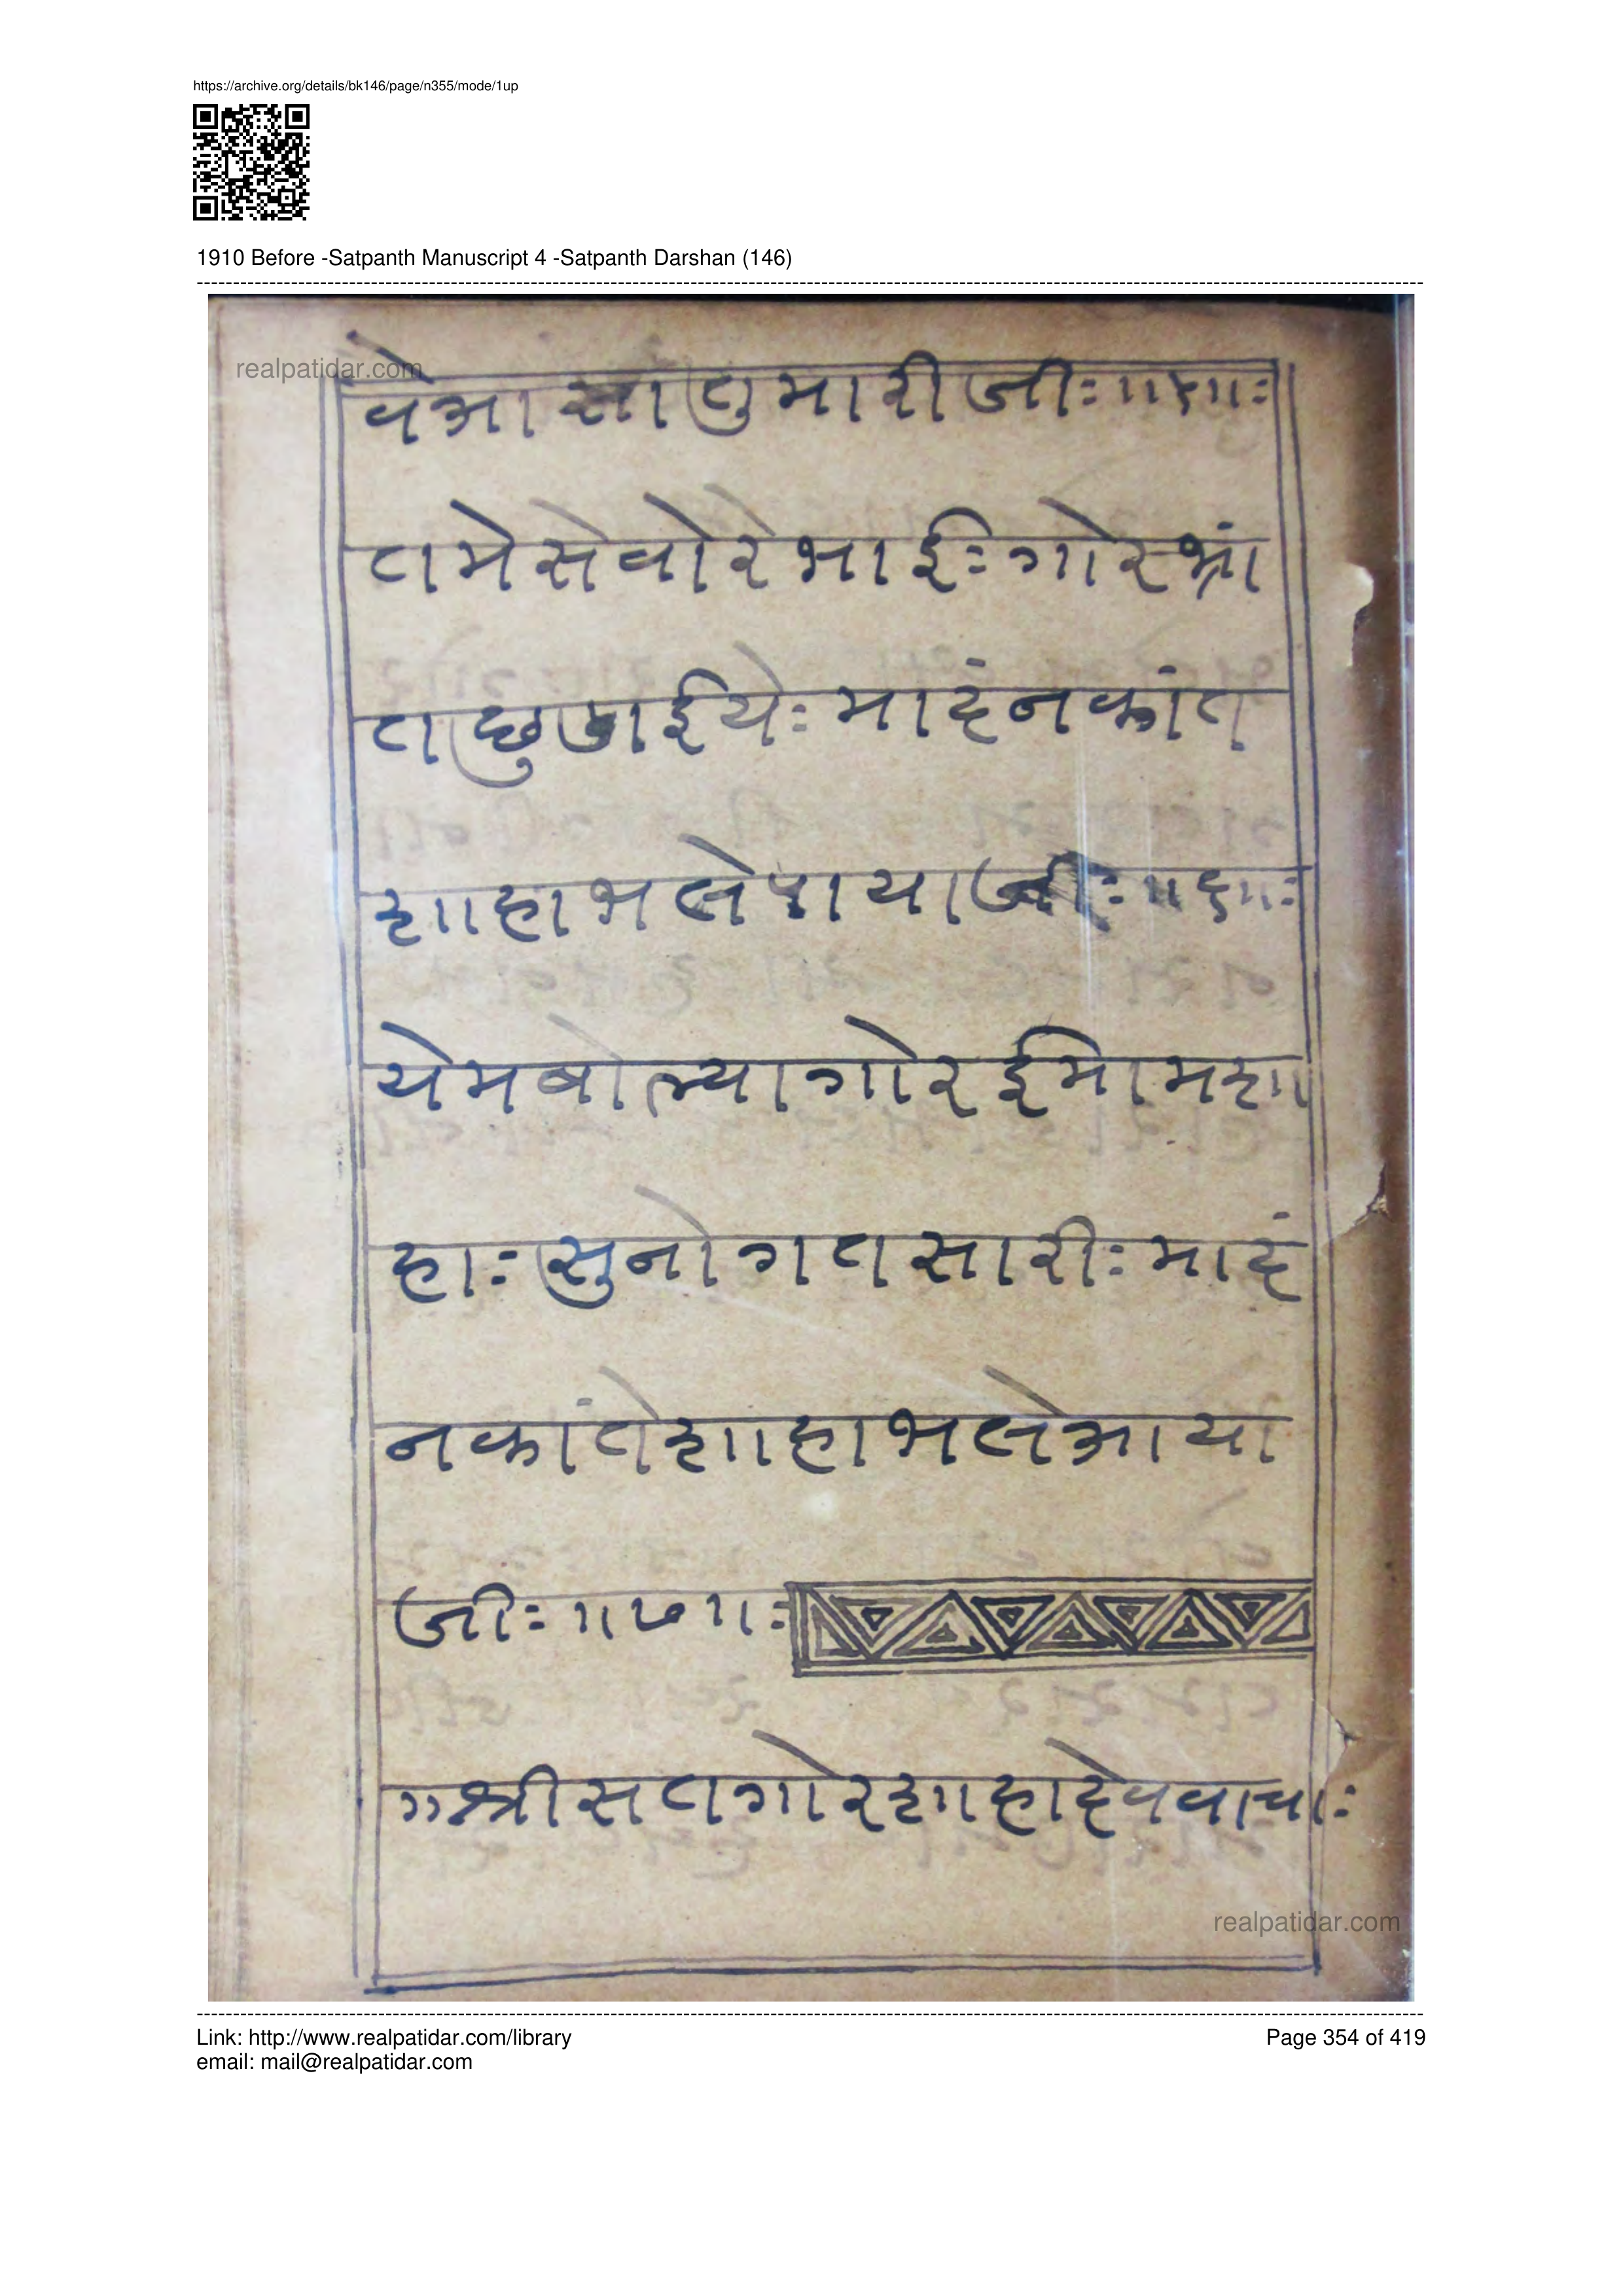 https://archive.org/details/bk146/page/n355/mode/1up
1910 Before -Satpanth Manuscript 4 -Satpanth Darshan (146)
realpatidar.com
वेआसातुमारीजीः॥५॥ः
तमेसेवोरेभाईःगोरभ्रां
तछुडाईयेःमादंनकांत
शाहाभलेपायाजीः॥६॥ः
येमबोल्यागोरईमामशा
हाःसुनोगतसारीःमादं
नकांतेशाहाभलेआया
जीः॥७॥ः
॥श्रीसतगोरशाहादेववाचाः
realpatidar.com
Link: http://www.realpatidar.com/library
Page 354 of 419
email: mail@realpatidar.com